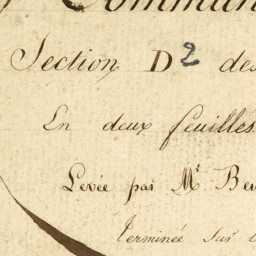 Commun
Section D2 des
En deux feuilles
Levée par Mr Be
Terminée sur